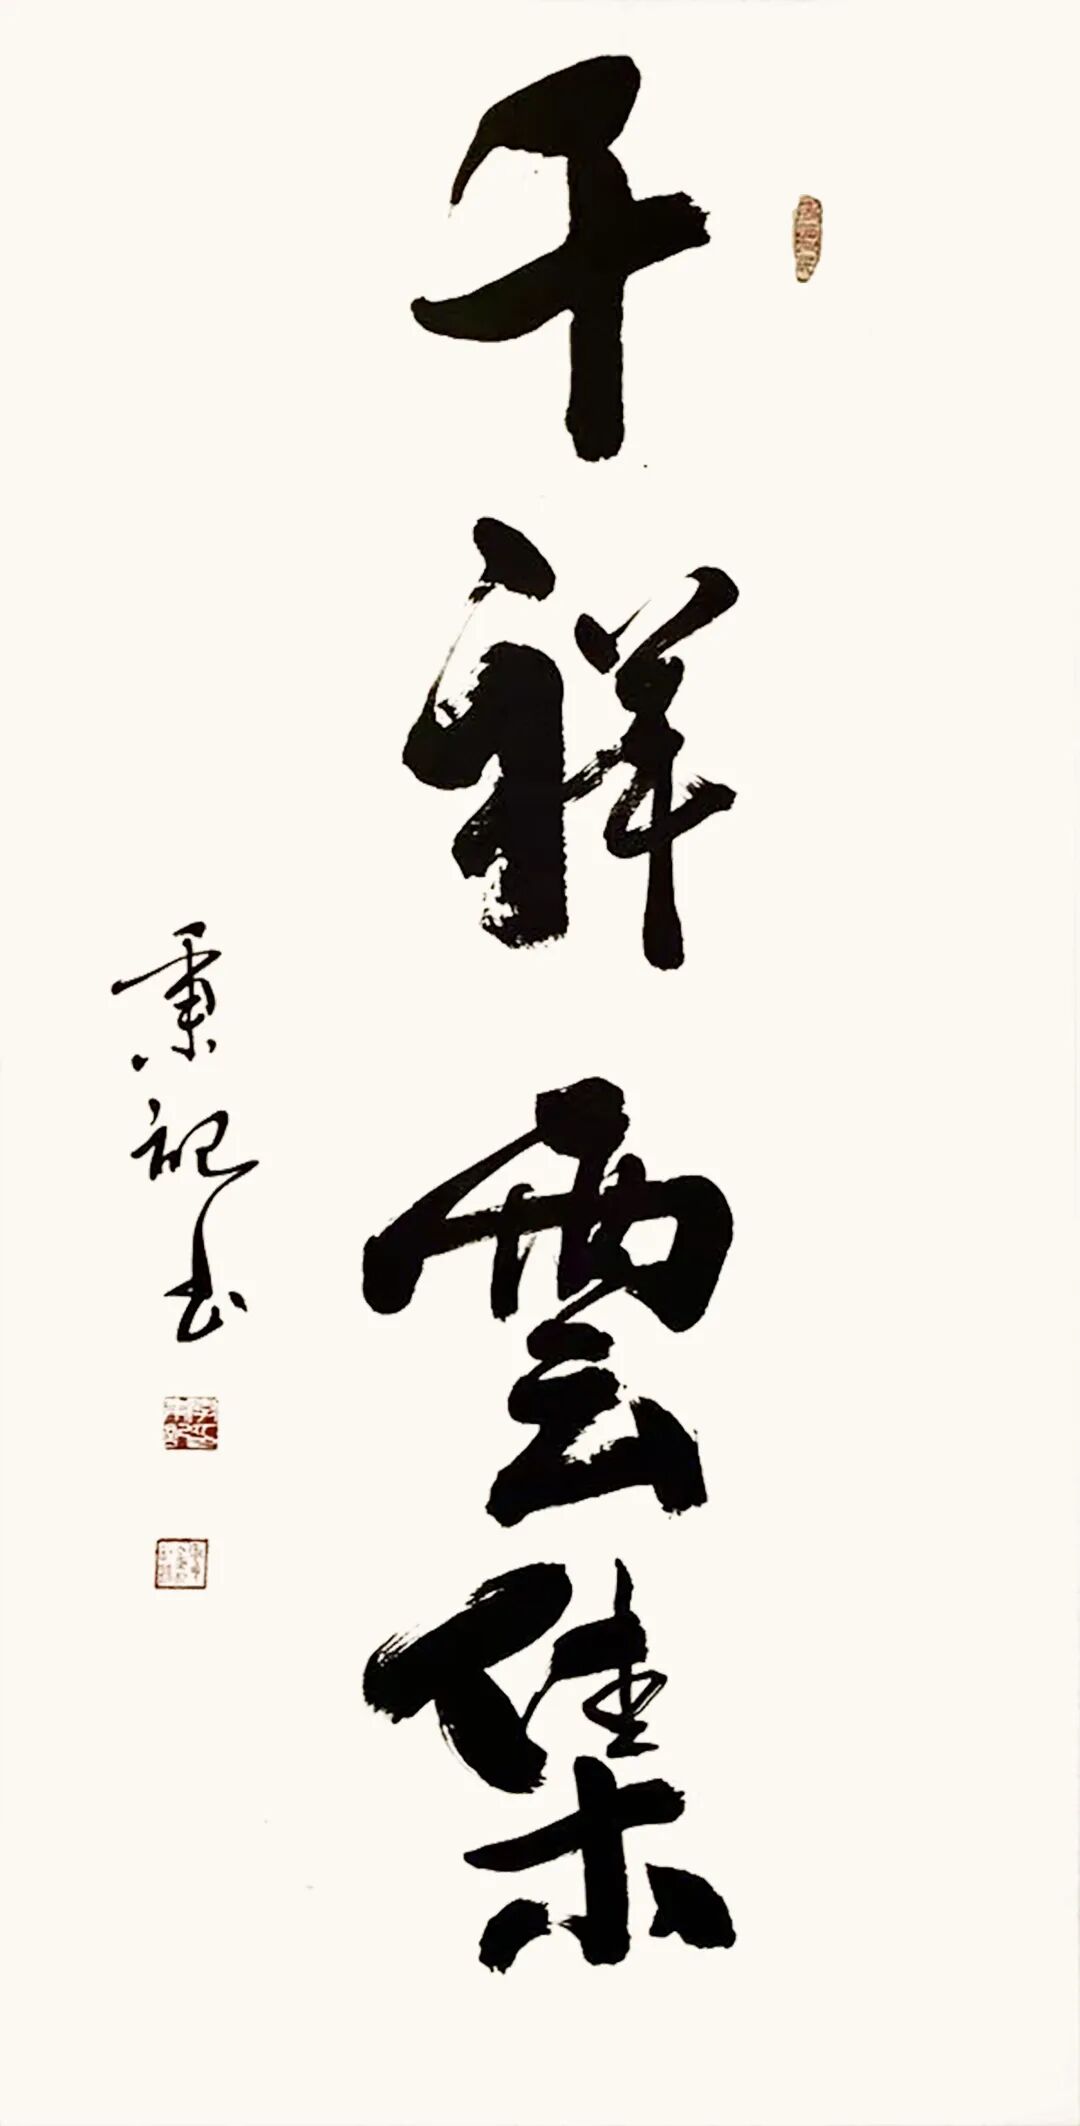 千祥雲集
秉祀书